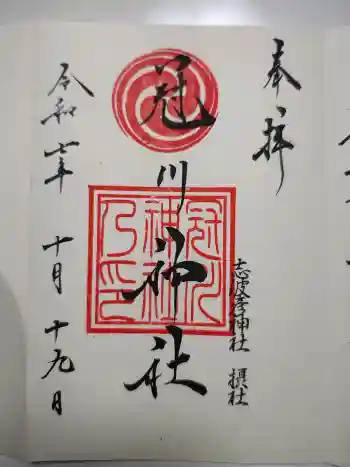 奉拝
志波彦神社 摂社
冠川神社
冠川神社之印
令和七年 十月 十九日